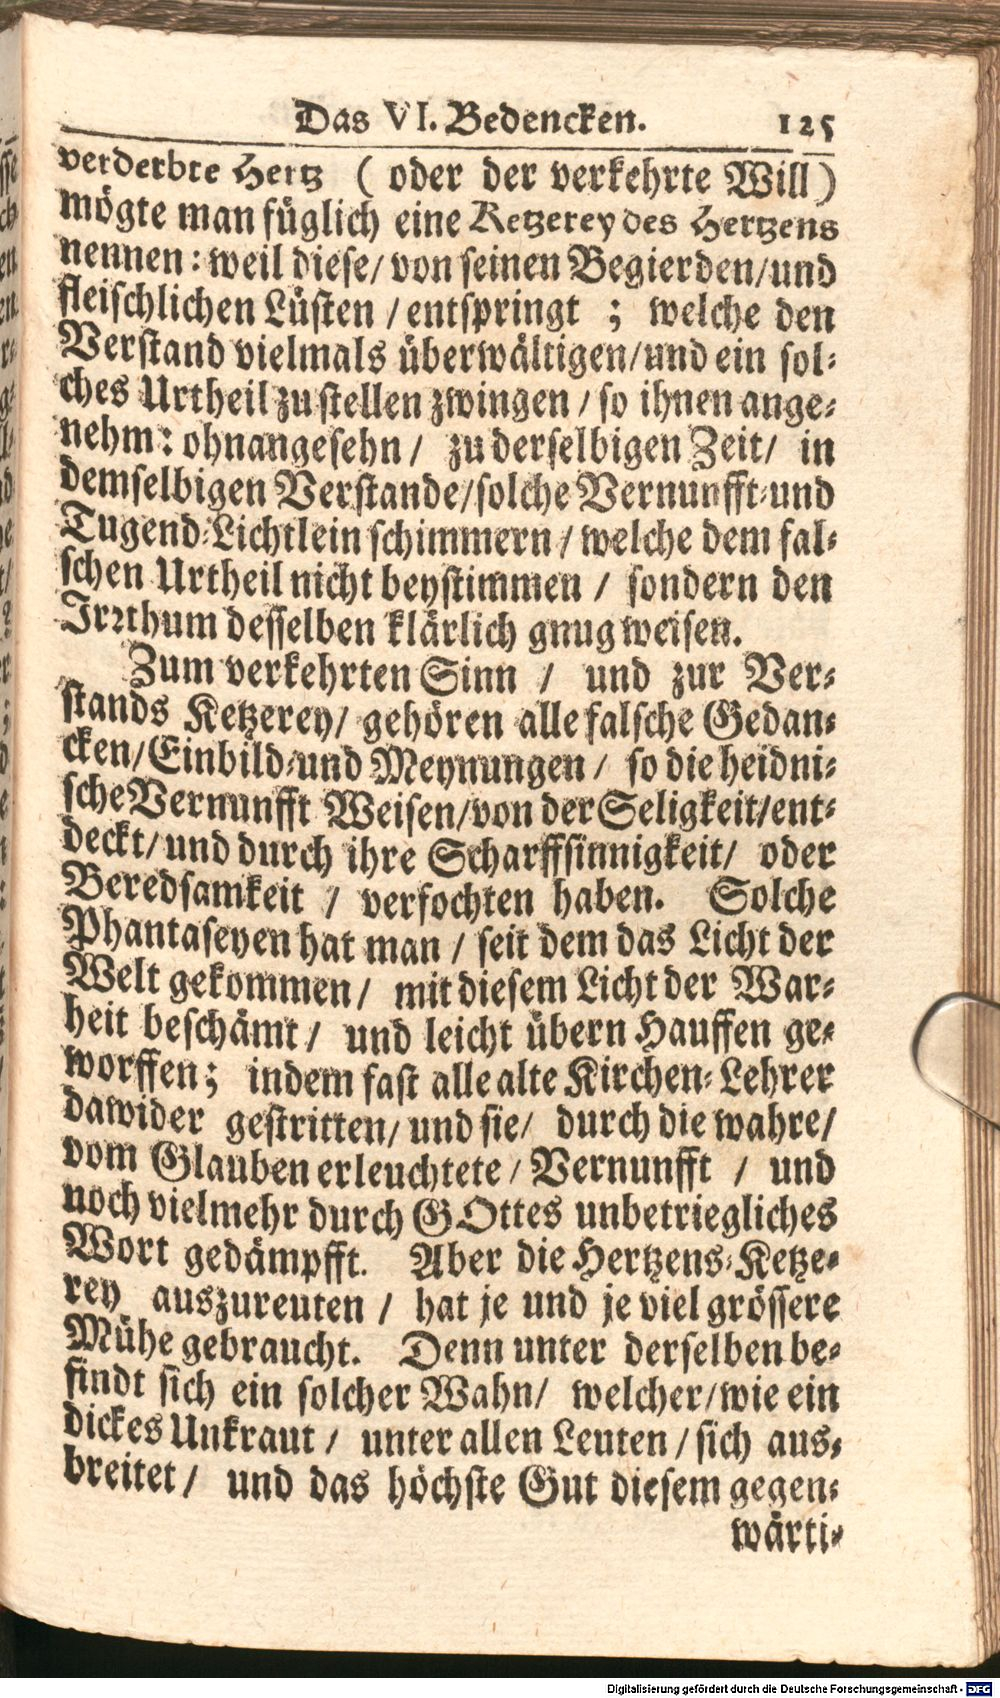 Das VI. Bedencken. 125
verderbte Hertz (oder der verkehrte Will)
mögte man füglich eine Ketzerey des Hertzens
nennen: weil diese/ von seinen Begierden/und
fleischlichen Lüsten / entspringt ; welche den
Verstand vielmals überwältigen/und ein sol-
ches Urtheil zu stellen zwingen / so ihnen ange-
nehm: ohnangesehn / zu derselbigen Zeit/ in
demselbigen Verstande/solche Vernunfft-und
Tugend-Lichtlein schimmern / welche dem fal-
schen Urtheil nicht beystimmen / sondern den
Irꝛthum desselben klärlich gnug weisen.
Zum verkehrten Sinn / und zur Ver-
stands Ketzerey/ gehören alle falsche Gedan-
cken/Einbild-und Meynungen / so die heidni-
sche Vernunfft Weisen/von der Seligkeit/ent-
deckt/ und durch ihre Scharffsinnigkeit/ oder
Beredsamkeit / verfochten haben. Solche
Phantaseyen hat man / seit dem das Licht der
Welt gekommen/ mit diesem Licht der War-
heit beschämt / und leicht übern Hauffen ge-
worffen; indem fast alle alte Kirchen-Lehrer
dawider gestritten/ und sie/ durch die wahre/
vom Glauben erleuchtete / Vernunfft / und
noch vielmehr durch GOttes unbetriegliches
Wort gedämpfft. Aber die Hertzens-Ketze-
rey auszureuten / hat je und je viel grössere
Mühe gebraucht. Denn unter derselben be-
findt sich ein solcher Wahn/ welcher/wie ein
dickes Unkraut / unter allen Leuten / sich aus-
breitet / und das höchste Gut diesem gegen-
wärti-
Digitalisierung gefördert durch die Deutsche Forschungsgemeinschaft - DFG